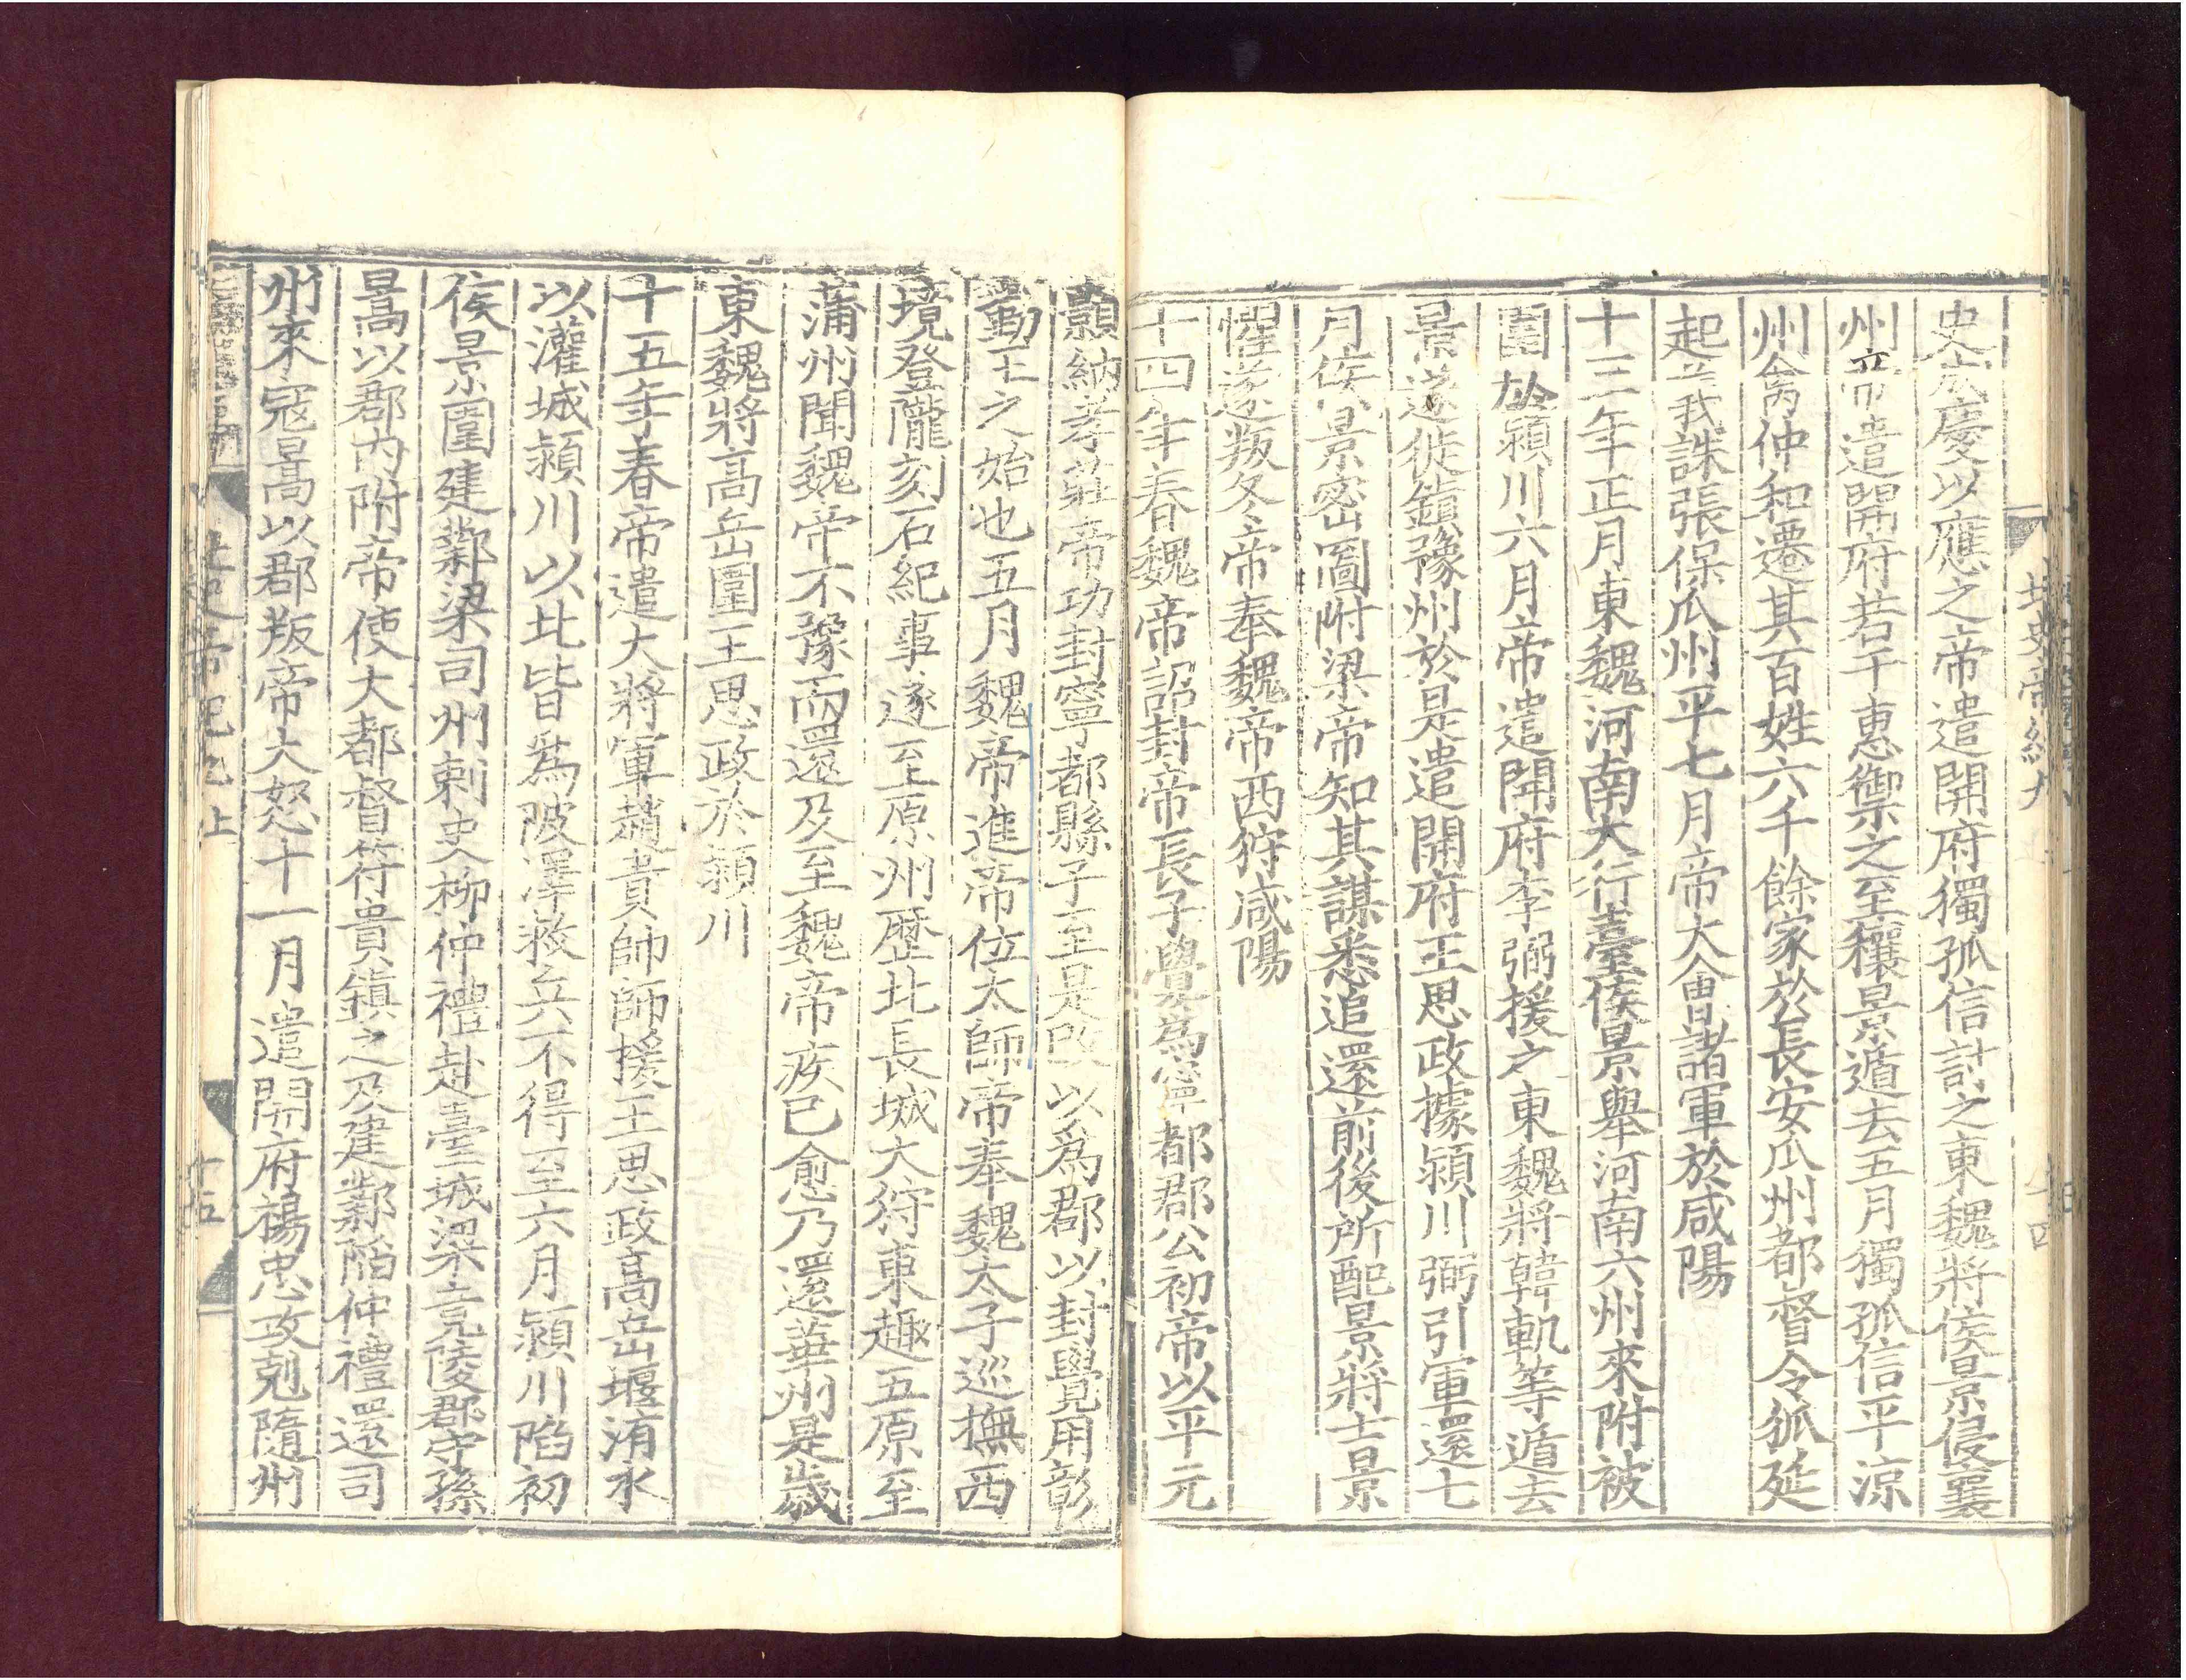 北史帝紀九
十四
史成慶以應之帝遣開府獨孤信討之東魏將侯景侵襄
州帝遣開府若干惠禦之至穰景遁去五月獨孤信平涼
州禽仲和遷其百姓六千餘家於長安瓜州都督令狐延
起義誅張保瓜州平七月帝大會諸軍於咸陽
十三年正月東魏河南大行臺侯景舉河南六州來附被
圍於潁川六月帝遣開府李弼援之東魏將韓軌等遁去
景遂徙鎮豫州於是遣開府王思政據潁川弼引軍還七
月侯景密圖附梁帝知其謀悉追還前後所配景將士景
懼遂叛冬帝奉魏帝西狩咸陽
十四年春魏帝詔封帝長子覺為寧都郡公初帝以平元
顥納孝莊帝功封寧都縣子至是改以爲郡以封覺用彰
勤王之始也五月魏帝進帝位太師帝奉魏太子巡撫西
境登隴刻石紀事遂至原州歷北長城大狩東趣五原至
蒲州聞魏帝不豫而還及至魏帝疾已愈乃還華州是歲
東魏將高岳圍王思政於潁川
十五年春帝遣大將軍趙貴帥師援王思政高岳堰洧水
以灌城潁川以北皆爲陂澤救兵不得至六月潁川陷初
侯景圍建鄴梁司州刺史柳仲禮赴臺城梁竟陵郡守孫
暠以郡內附帝使大都督符貴鎮之及建鄴陷仲禮還司
州來寇暠以郡叛帝大怒十一月遣開府楊忠攻剋隨州
北史帝紀上
十五